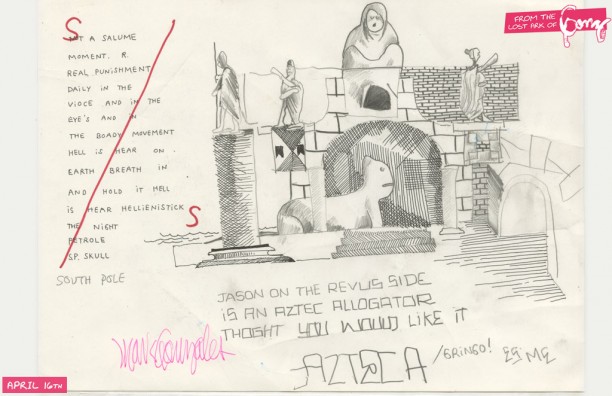 S NOT A SALUME
MOMENT. R.
REAL PUNISHMENT
DAILY IN THE
VIOCE AND IN THE
EYE'S AND IN
THE BOADY MOVEMENT
HELL IS HEAR ON
EARTH BREATH IN
AND HOLD IT HELL
IS HEAR HELLIENISTICK S
THE NIGHT
PETROLE
S.P. SKULL
SOUTH POLE
JASON ON THE REVUS SIDE
IS AN AZTEC ALLOGATOR
THOGHT YOU WOUD LIKE IT
AZTECA /GRINGO!
Mark Gonzales
FROM THE
LOST ARK OF
Gonz
APRIL 16TH